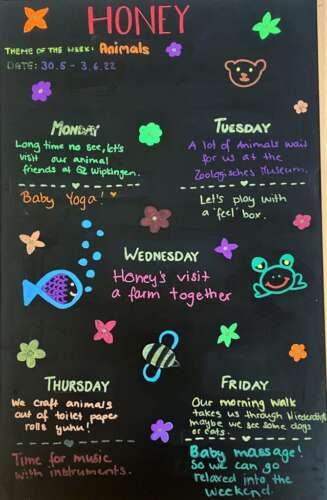 HONEY
THEME OF THE WEEK: Animals
DATE: 30.5 - 3.6.22
MONDAY
Long time no see, let's
visit our animal
friends at GZ Wipkingen.
Baby Yoga!
TUESDAY
A lot of Animals wait
for us at the
Zoologisches Museum.
Let's play with
a 'feel' box.
WEDNESDAY
Honey's visit
a farm together
THURSDAY
We craft animals
out of toilet paper
rolls yuhu!
Time for music
with instruments.
FRIDAY
Our morning walk
takes us through
maybe we see some dogs
or cats.
Baby massage!
So we can go
relaxed into the
weekend.